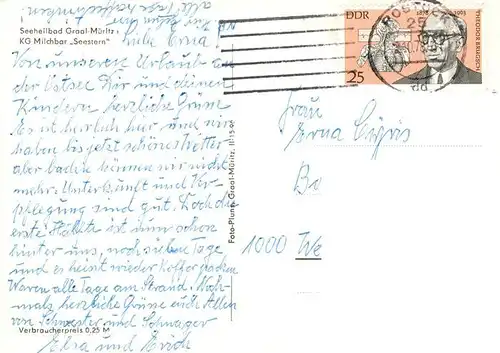 Seeheilbad Graal-Müritz
KG Milchbar „Seestern“
Liebe Erna
Von unserem Urlaub an
der Ostsee Dir und deinen
Kindern herzliche Grüße
Es ist herrlich hier und wir
haben bis jetzt schönes Wetter
aber baden können wir nicht
mehr. Unterkunft und Ver-
pflegung sind gut. Doch die
erste Hälfte ist nun schon
hinter uns, noch sieben Tage
und es heißt wieder Koffer packen
Waren alle Tage am Strand. Noch-
mals herzliche Grüße euch Allen
von Schwester und Schwager
Elsa und Erich
Verbraucherpreis 0,25 M
Foto-Plump, Graal-Müritz,
DDR
25
THEODOR BRUGSCH
ROSTOCK
25
Frau
Erna
Bo
1000 We